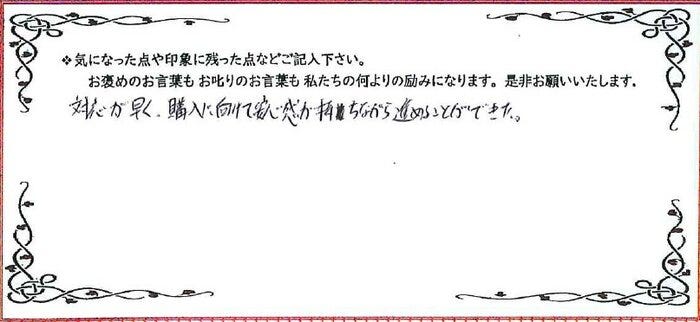 ❖気になった点や印象に残った点などご記入下さい。
お褒めのお言葉も お叱りのお言葉も 私たちの何よりの励みになります。是非お願いいたします。
対応が早く、購入に向けて安心感が持ちながら進めることができた。